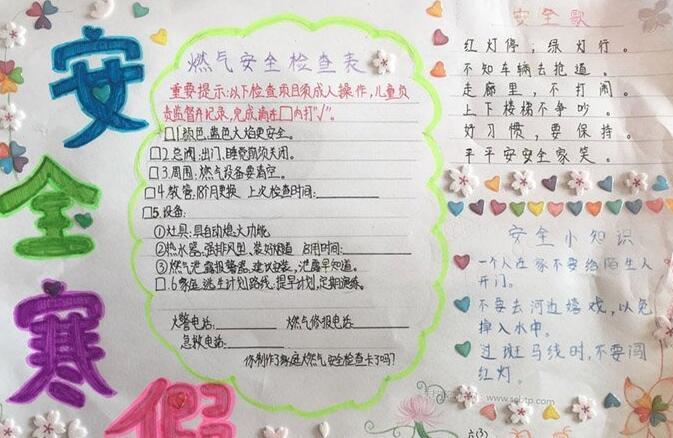 安全寒假
燃气安全检查表
重要提示:以下检查项目须成人操作,儿童负
责监督并记录,完成请在□内打"√"。
□1.颜色:蓝色火焰更安全。
□2.总阀:出门、睡觉前须关闭。
□3.周围:燃气设备要清空。
□4.软管:18个月更换 上次检查时间:
□5.设备:
①灶具:具自动熄火功能
②热水器:强排风型、装好烟道 启用时间:
③燃气泄露报警器:建议安装,泄露早知道。
□.6家庭逃生计划路线,提早计划,定期演练。
火警电话: 燃气修报电话:
急救电话:
你制作了家庭燃气安全检查卡了吗?
安全歌
红灯停,绿灯行。
不知车辆去抢道。
走廊里,不打闹。
上下楼梯不争吵。
好习惯,要保持。
平平安安全家笑。
安全小知识
一个人在家不要给陌生人
开门。
不要去河边嬉戏,以免
掉入水中。
过斑马线时,不要闯
红灯。
www.sebtp.com
六(3)